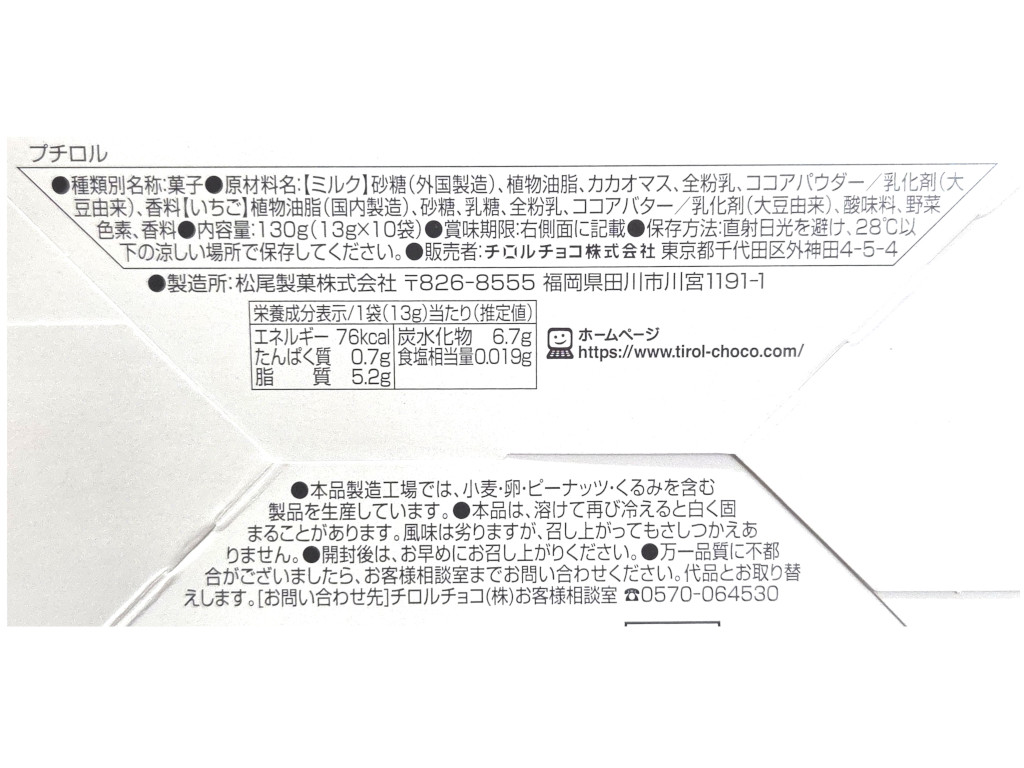 プチロル
●種類別名称:菓子●原材料名:【ミルク】砂糖(外国製造)、植物油脂、カカオマス、全粉乳、ココアパウダー/乳化剤(大
豆由来)、香料【いちご】植物油脂(国内製造)、砂糖、乳糖、全粉乳、ココアバター/乳化剤(大豆由来)、酸味料、野菜
色素、香料●内容量:130g(13g×10袋)●賞味期限:右側面に記載●保存方法:直射日光を避け、28℃以
下の涼しい場所で保存してください。●販売者:チロルチョコ株式会社 東京都千代田区外神田4-5-4
●製造所:松尾製菓株式会社 〒826-8555 福岡県田川市川宮1191-1
栄養成分表示/1袋(13g)当たり(推定値)
エネルギー 76kcal 炭水化物 6.7g
たんぱく質 0.7g 食塩相当量0.019g
脂 質 5.2g
ホームページ
https://www.tirol-choco.com/
●本品製造工場では、小麦・卵・ピーナッツ・くるみを含む
製品を生産しています。●本品は、溶けて再び冷えると白く固
まることがあります。風味は劣りますが、召し上がってもさしつかえあ
りません。●開封後は、お早めにお召し上がりください。●万一品質に不都
合がございましたら、お客様相談室までお問い合わせください。代品とお取り替
えします。[お問い合わせ先]チロルチョコ(株)お客様相談室 ☎0570-064530